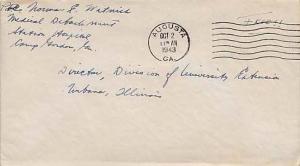 Pvt. Norma E. Watnick
Medical Detachment
Station Hospital
Camp Gordon, Ga.
AUGUSTA
OCT 2
11 AM
1943
GA.
Director, Division of University Extension
Urbana, Illinois